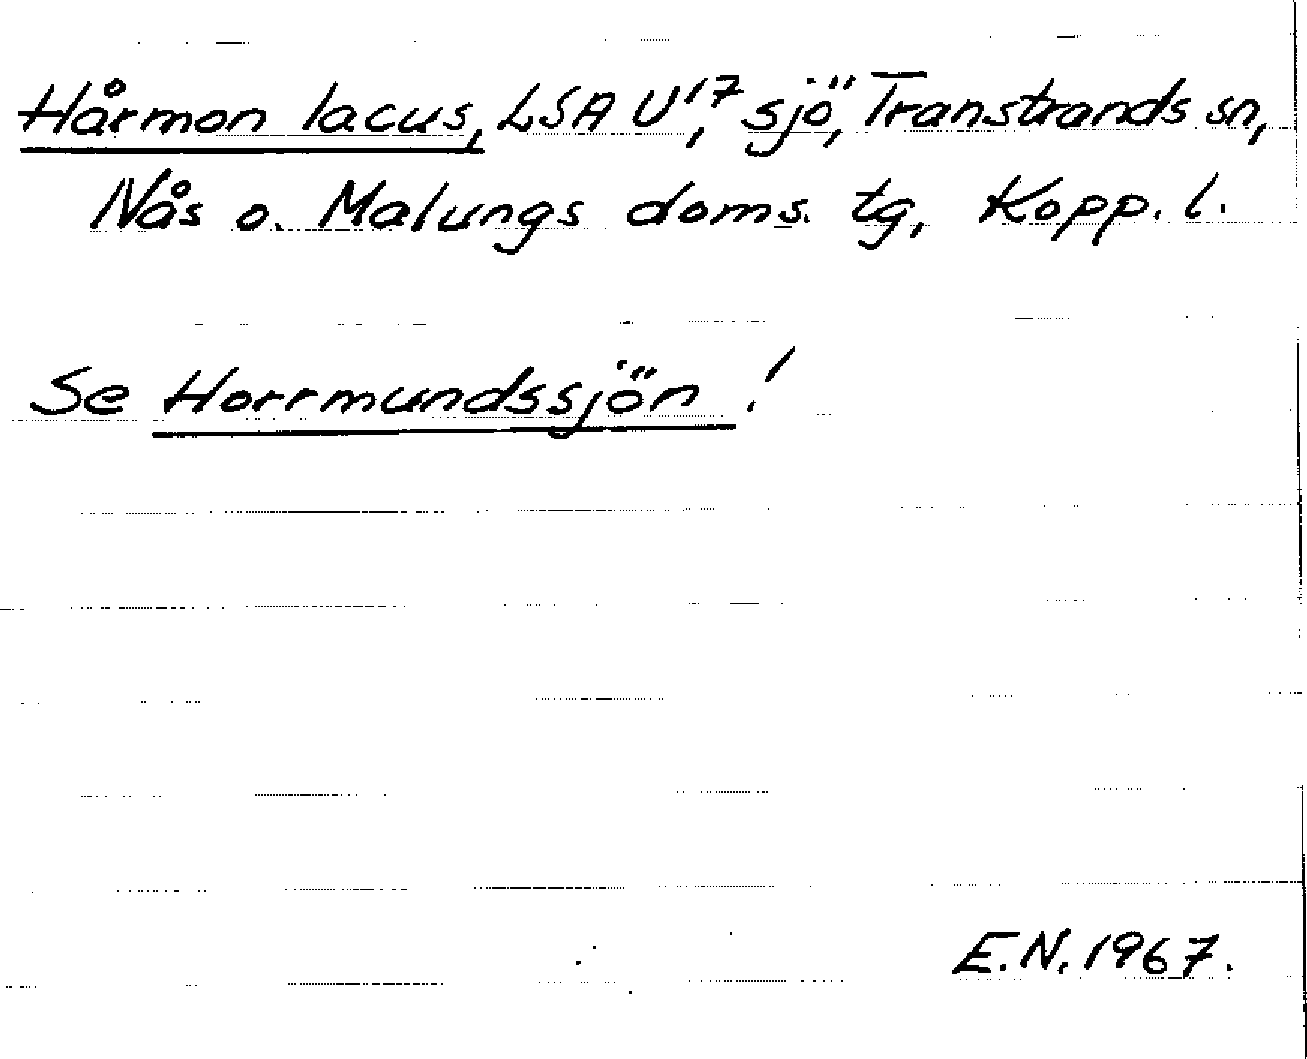 Hårmon lacus, LSA U¹,⁷ sjö, Transtrands sn,
Nås o. Malungs doms. tg, Kopp. l.
Se Horrmundssjön!
E.N. 1967.